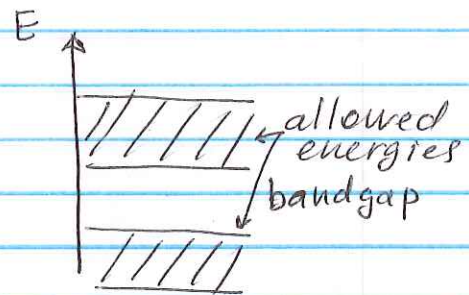 E
allowed
energies
bandgap